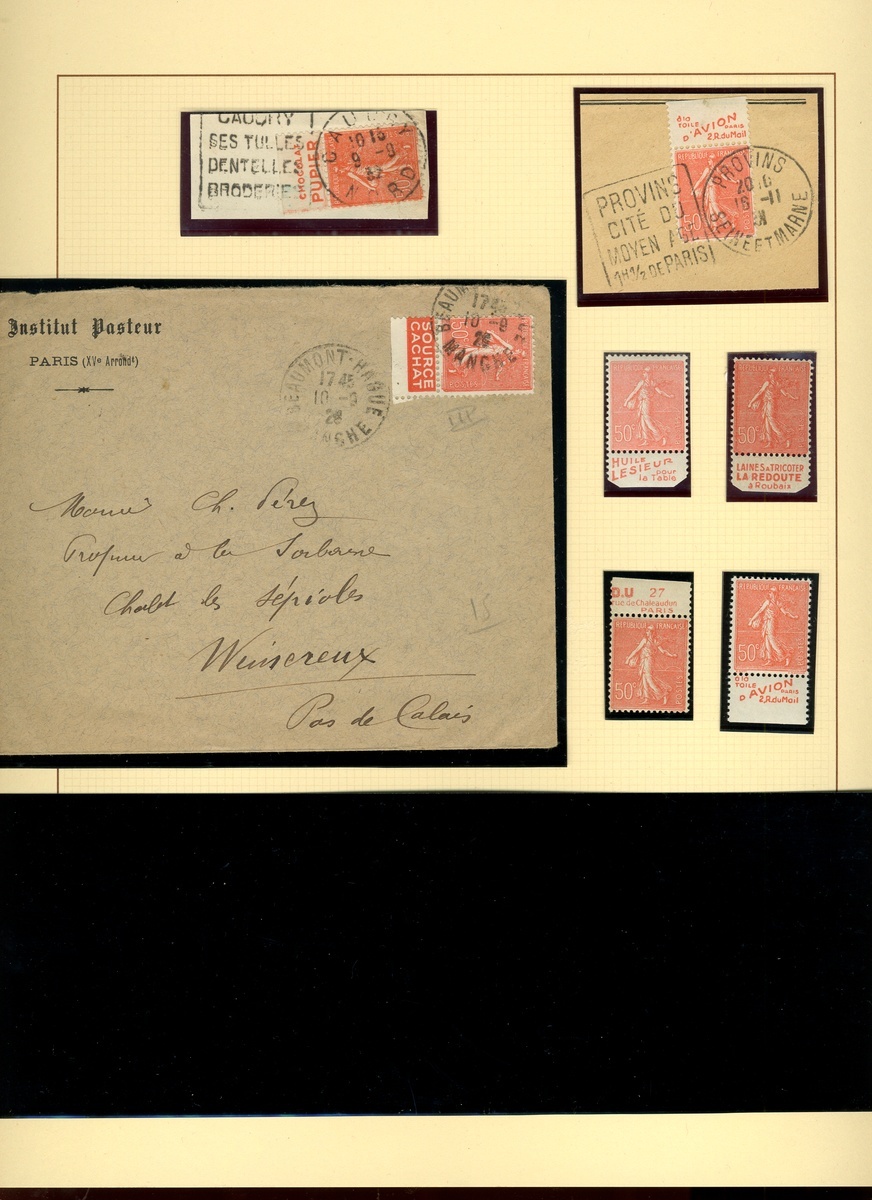 CAUDRY
SES TULLES
DENTELLES
BRODERIES
CHOCOLAT
PUPIER
CAUDRY
10 15
9 -9
NORD
à la
TOILE PARIS
D'AVION
2.R.du Mail
REPUBLIQUE FRANÇAISE
50
PROVINS
CITÉ DU
MOYEN AGE
1H 1/2 DE PARIS
PROVINS
16 -11
31
SEINE ET MARNE
Institut Pasteur
PARIS (XVe Arrondt)
BEAUMONT-HAGUE
17 45
10 -9
28
MANCHE
SOURCE
CACHAT
50c
POSTES
BEAUMONT-HAGUE
17 45
10 -9
28
MANCHE
Ch. Pérez
Professeur à la Sorbonne
Chalet les Sépioles
Wimereux
Pas de Calais
15
REPUBLIQUE FRANÇAISE
50c
POSTES
HUILE
LESIEUR pour
la Table
REPUBLIQUE FRANÇAISE
50c
POSTES
LAINES à TRICOTER
LA REDOUTE
à Roubaix
D.U 27
rue de Chateaudun
PARIS
REPUBLIQUE FRANÇAISE
50c
POSTES
REPUBLIQUE FRANÇAISE
50c
POSTES
à la
TOILE PARIS
D'AVION
2.R.du Mail